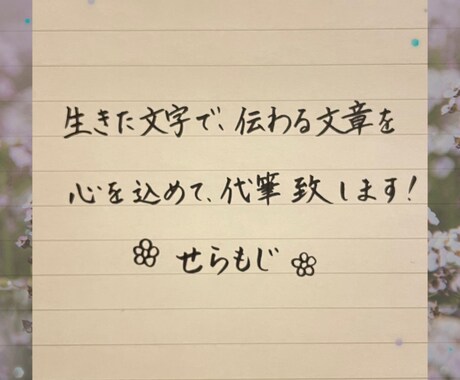 生きた文字で、伝わる文章を
心を込めて、代筆致します!
せらもじ